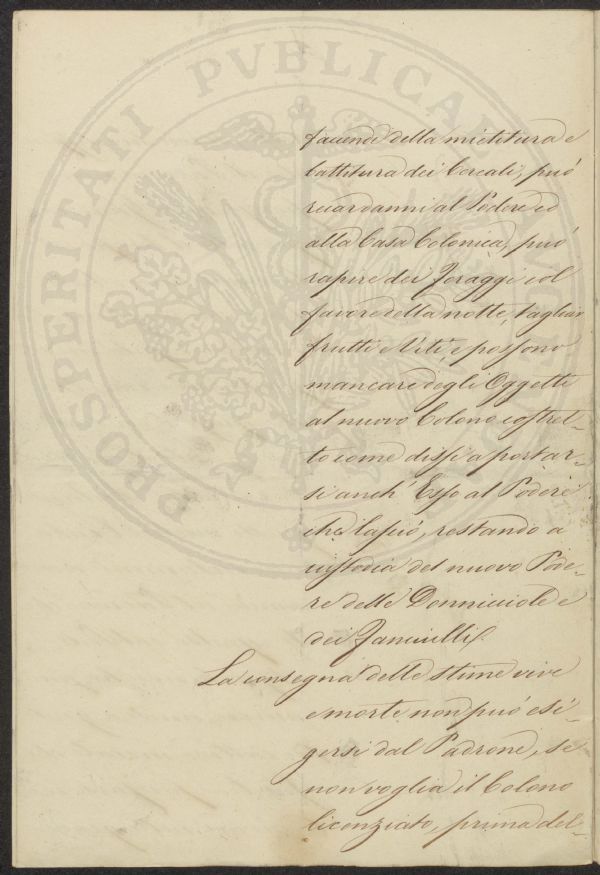 PROSPERITATI PVBLICAE
facende della mietitura e
battitura dei Cereali, può
recar danni al Podere ed
alla Casa Colonica, può
rapire dei Foraggi col
favore della notte, tagliar
frutti e Viti, e possono
mancare degli Oggetti
al nuovo Colono costret-
to come dissi a portar-
si anch' Esso al Podere
che lasciò, restando a
custodia del nuovo Pode-
re delle Donniciole e
dei Fanciulli.
La consegna delle stime vive
e morte non può esi-
gersi dal Padrone, se
non voglia il Colono
licenziato, prima del-